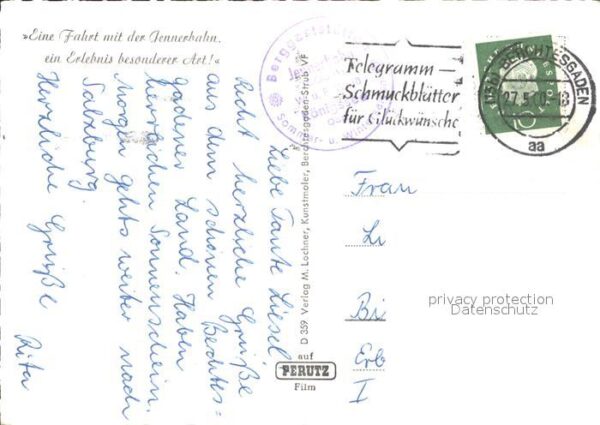 »Eine Fahrt mit der Jennerbahn,
ein Erlebnis besonderer Art!«
Liebe Tante Liesel
Recht herzliche Grüße
aus dem schönen Bechtes-
gadener Land. Haben
herrlichen Sonnenschein.
Morgen gehts weiter nach
Salzburg.
Herzliche Grüße
Rita
D 359 Verlag M. Lochner, Kunstmaler, Berchtesgaden-Strub VF
auf
PERUTZ
Film
Berggaststätte
Sommer- u.
Telegramm —
Schmuckblätter
für Glückwünsche
BERCHTESGADEN
aa
10
Frau
Li
Bi
Erb
I
privacy protection
Datenschutz